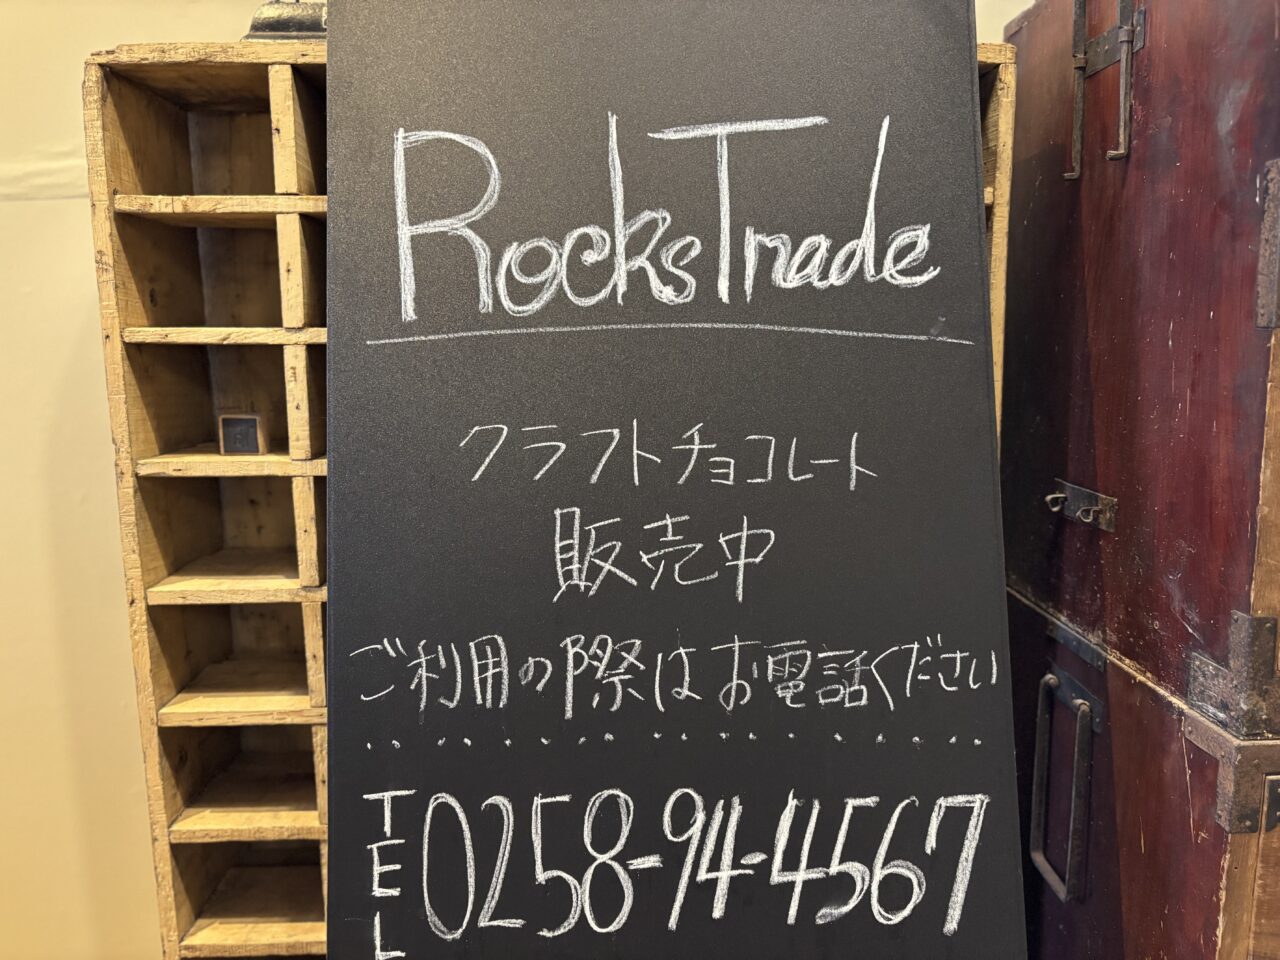 RocksTrade
クラフトチョコレート
販売中
ご利用の際はお電話ください
TEL 0258-94-4567